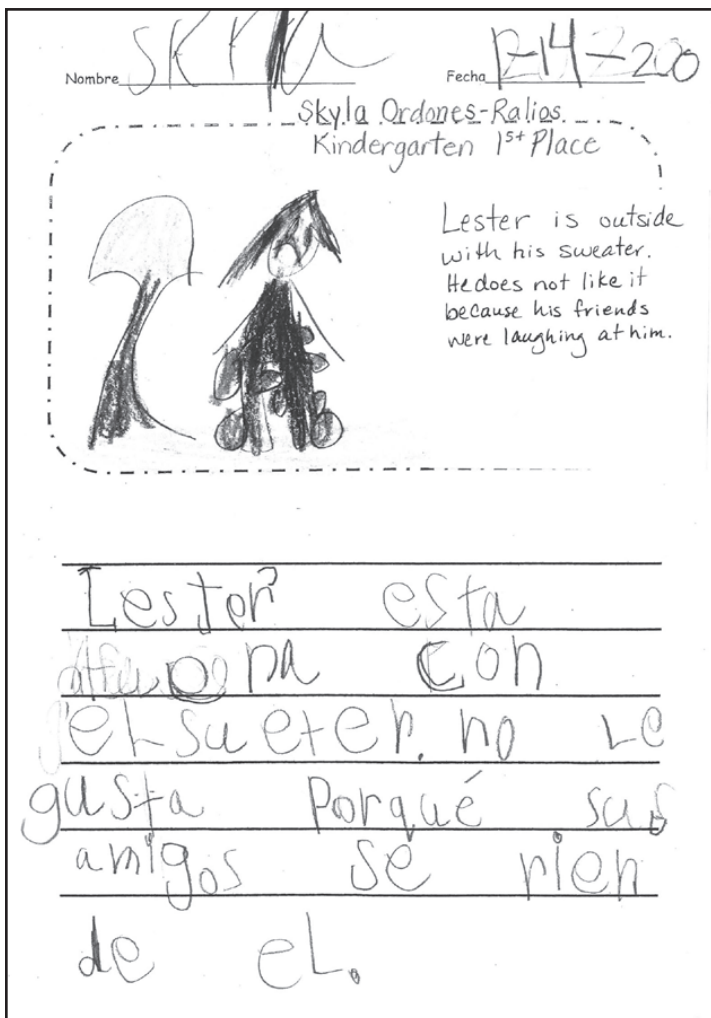 Nombre Skyla
Fecha 12-14-200
Skyla Ordones-Ralios
Kindergarten 1st Place
Lester is outside
with his sweater.
He does not like it
because his friends
were laughing at him.
Lester esta
con
el sueter. no Le
gusta Porqué sus
amigos se rien
de eL.